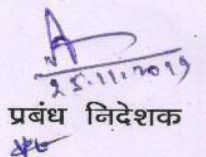 25.11.2019
प्रबंध निदेशक